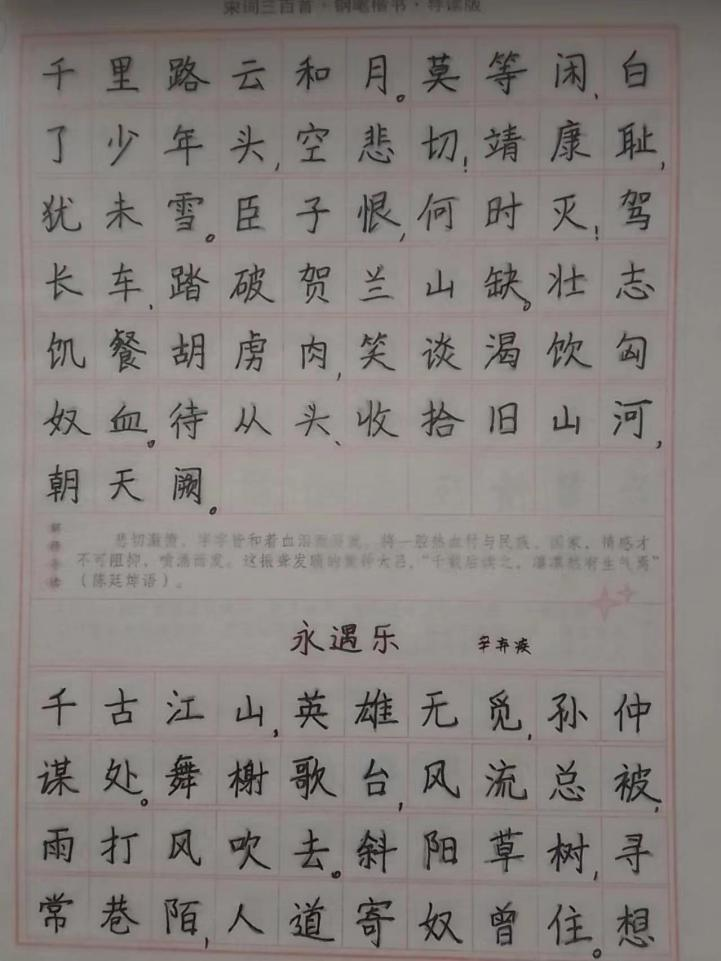 宋词三百首·钢笔楷书·导读版
千里路云和月。莫等闲、白
了少年头,空悲切!靖康耻,
犹未雪。臣子恨,何时灭!驾
长车、踏破贺兰山缺。壮志
饥餐胡虏肉,笑谈渴饮匈
奴血。待从头、收拾旧山河,
朝天阙。
悲切激愤,字字皆和着血泪
将一腔热血付与民族、国家,情感才
不可阻抑,喷涌而发。这振聋发聩的黄钟大吕,“千载后读之,凛凛然有生气焉”
(陈廷焯语)。
永遇乐 辛弃疾
千古江山,英雄无觅,孙仲
谋处。舞榭歌台,风流总被,
雨打风吹去。斜阳草树,寻
常巷陌,人道寄奴曾住。想